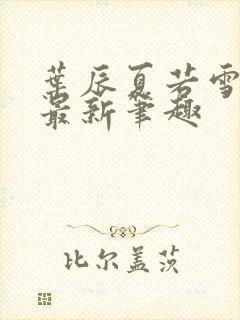 葉辰夏若雪
最新筆趣
比尔盖茨